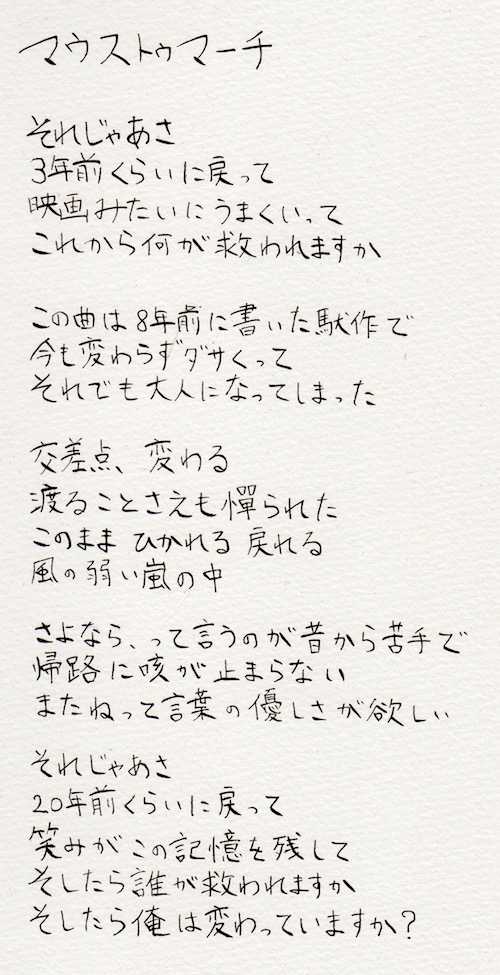 マウストゥマーチ
それじゃあさ
3年前くらいに戻って
映画みたいにうまくいって
これから何が救われますか
この曲は8年前に書いた駄作で
今も変わらずダサくって
それでも大人になってしまった
交差点、変わる
渡ることさえも憚られた
このまま ひかれる 戻れる
風の弱い嵐の中
さよなら、って言うのが昔から苦手で
帰路に咳が止まらない
またねって言葉の優しさが欲しい
それじゃあさ
20年前くらいに戻って
笑みがこの記憶を残して
そしたら誰が救われますか
そしたら俺は変わっていますか?